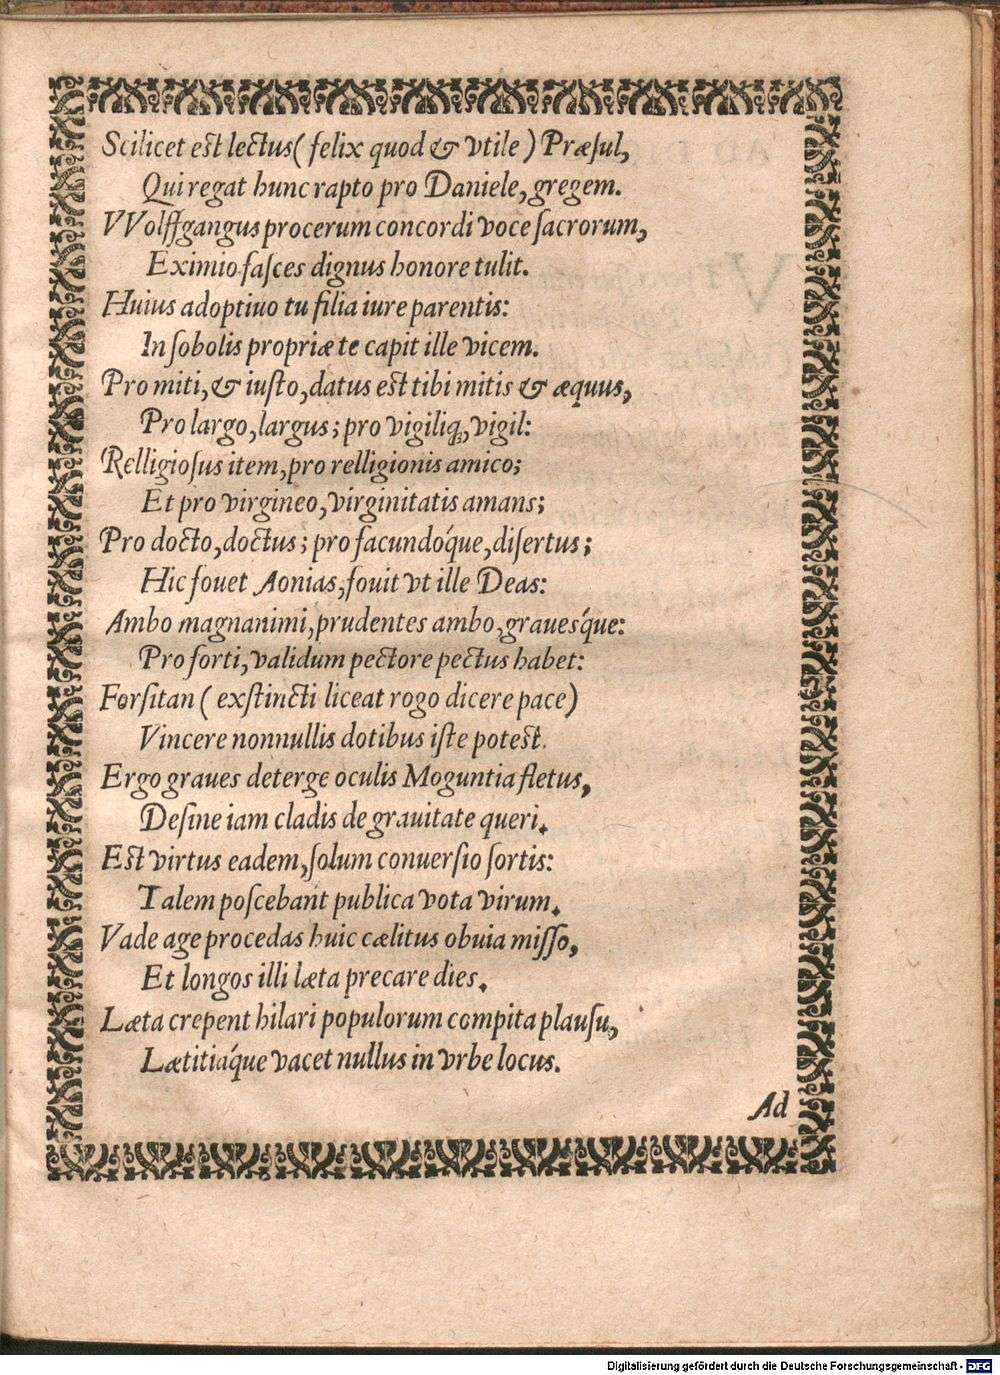 Scilicet est lectus ( felix quod & vtile ) Præſul,
Qui regat hunc rapto pro Daniele, gregem.
VVolffgangus procerum concordi voce ſacrorum,
Eximio faſces dignus honore tulit.
Huius adoptiuo tu filia iure parentis:
In ſobolis propriæ te capit ille vicem.
Pro miti, & iuſto, datus est tibi mitis & æquus,
Pro largo, largus; pro vigiliq́;, vigil:
Relligioſus item, pro relligionis amico;
Et pro virgineo, virginitatis amans;
Pro docto, doctus; pro facundóque, diſertus;
Hic fouet Aonias, fouit vt ille Deas:
Ambo magnanimi, prudentes ambo, graueśque:
Pro forti, validum pectore pectus habet:
Forſitan ( exſtincti liceat rogo dicere pace)
Vincere nonnullis dotibus iſte potest.
Ergo graues deterge oculis Moguntia fletus,
Deſine iam cladis de grauitate queri.
Est virtus eadem, ſolum conuerſio ſortis:
Talem poſcebant publica vota virum.
Vade age procedas huic cælitus obuia miſſo,
Et longos illi læta precare dies.
Læta crepent hilari populorum compita plauſu,
Lætitiáque vacet nullus in vrbe locus.
Ad
Digitalisierung gefördert durch die Deutsche Forschungsgemeinschaft - DFG